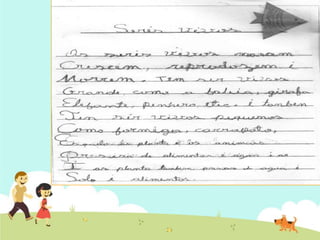 Seris vivos
As seris vivos nasem
Crescem, reprodosem e
Morrem. Tem ser vivos
Grande como a baleia, girafa
Elefante, etc. e tanben
Tem ser vivos pequenos
Como formiga, carrapato,
planta e os animais
de alimentos e agua
as planta de agua e
Solo e alimentos.